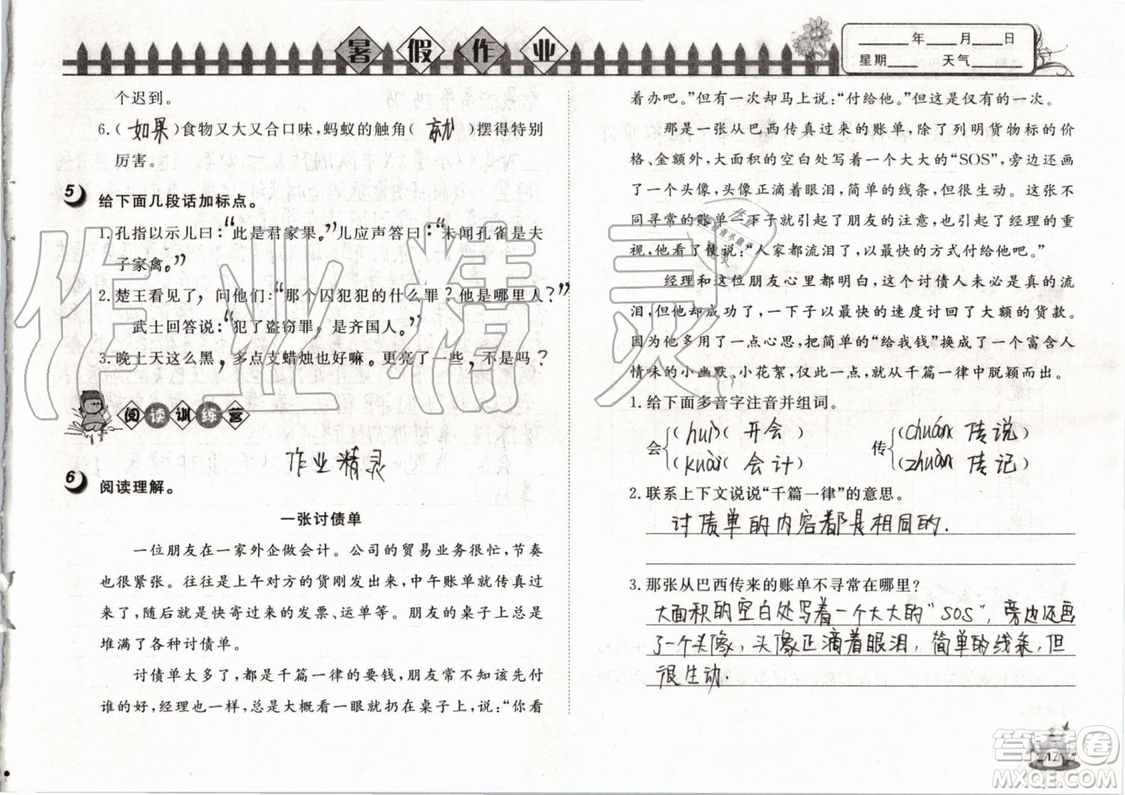 暑假作业
____年___月___日
星期____ 天气____
个迟到。
6.(如果)食物又大又合口味,蚂蚁的触角(就)摆得特别
厉害。
5 给下面几段话加标点。
1.孔指以示儿曰:“此是君家果。”儿应声答曰:“未闻孔雀是夫
子家禽。”
2.楚王看见了,问他们:“那个囚犯犯的什么罪?他是哪里人?”
武士回答说:“犯了盗窃罪,是齐国人。”
3.晚上天这么黑,多点支蜡烛也好嘛。更亮了一些,不是吗?
阅读训练营
作业精灵
6 阅读理解。
一张讨债单
一位朋友在一家外企做会计。公司的贸易业务很忙,节奏
也很紧张。往往是上午对方的货刚发出来,中午账单就传真过
来了,随后就是快寄过来的发票、运单等。朋友的桌子上总是
堆满了各种讨债单。
讨债单太多了,都是千篇一律的要钱,朋友常不知该先付
谁的好,经理也一样,总是大概看一眼就扔在桌子上,说:“你看
着办吧。”但有一次却马上说:“付给他。”但这是仅有的一次。
那是一张从巴西传真过来的账单,除了列明货物标的价
格、金额外,大面积的空白处写着一个大大的“SOS”,旁边还画
了一个头像,头像正滴着眼泪,简单的线条,但很生动。这张不
同寻常的账单一下子就引起了朋友的注意,也引起了经理的重
视,他看了便说:“人家都流泪了,以最快的方式付给他吧。”
经理和这位朋友心里都明白,这个讨债人未必是真的流
泪,但他却成功了,一下子以最快的速度讨回了大额的货款。
因为他多用了一点心思,把简单的“给我钱”换成了一个富含人
情味的小幽默、小花絮,仅此一点,就从千篇一律中脱颖而出。
1.给下面多音字注音并组词。
会{(huì)(开会) 传{(chuán 传说)
(kuài)(会计) (zhuàn 传记)
2.联系上下文说说“千篇一律”的意思。
讨债单的内容都是相同的.
3.那张从巴西传来的账单不寻常在哪里?
大面积的空白处写着一个大大的“SOS”,旁边还画
了一个头像,头像正滴着眼泪,简单的线条,但
很生动.
作业精灵
答案卷
MXQE.COM
12